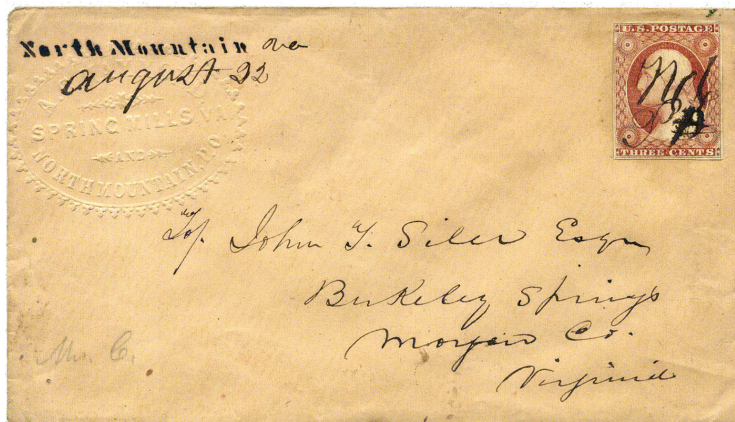 North Mountain va
august 22
A.
SPRING MILLS VA.
AND
NORTH MOUNTAIN P.O.
U.S. POSTAGE
THREE CENTS
To/. John T. Siler Esqr
Berkeley Springs
Morgan Co.
Virginia